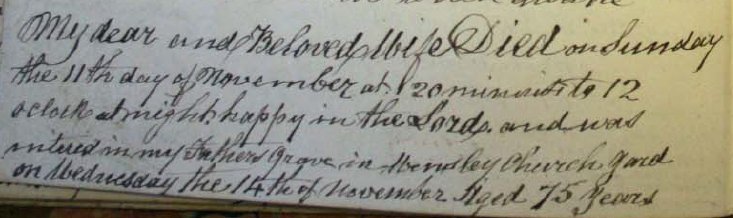 My dear and Beloved Wife Died on Sunday
the 11th day of November at 20 minuits to 12
oclock at night happy in the Lord and was
intered in my Fathers Grave in Church yard
on Wednesday the 14th of November Aged 75 Years